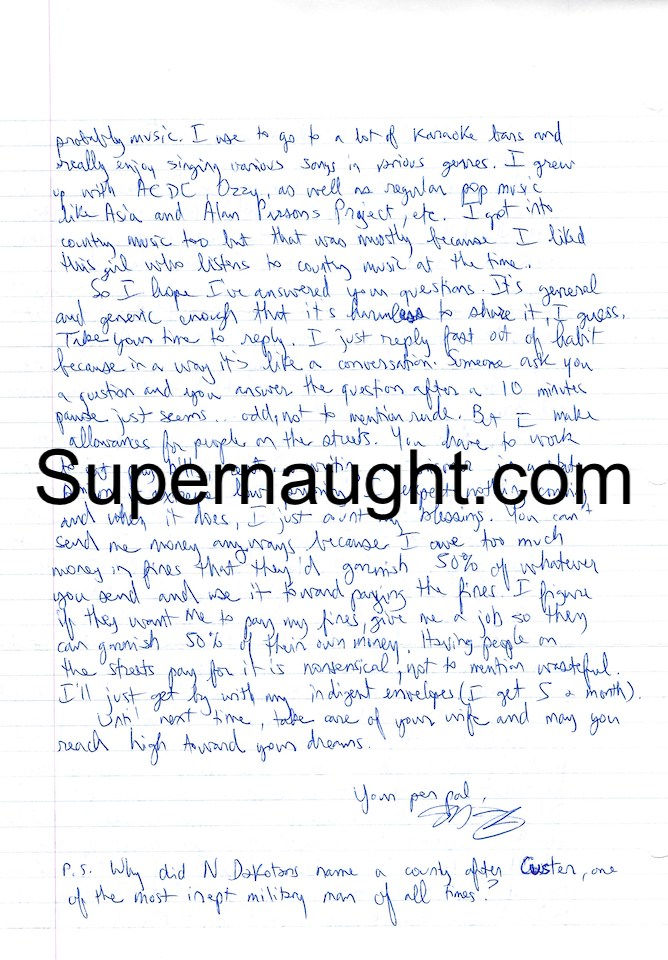 probably music. I use to go to a lot of karaoke bars and
really enjoy singing various songs in various genres. I grew
up with ACDC, Ozzy, as well as regular pop music
like Asia and Alan Pissons Project, etc. I got into
country music too but that was mostly because I liked
this girl who listens to country music at the time.
So I hope I've answered your questions. It's general
and generic enough that it's harmless to share it, I guess.
Take your time to reply. I just reply fast out of habit
because in a way it's like a conversation. Someone ask you
a question and you answer the question after a 10 minute
pause just seems... odd, not to mention rude. But I make
allowances for people on the streets. You have to work
to
Supernaught.com
expect nothing
and when it does, I just count my blessings. You can't
send me money anyways because I owe too much
money in fines that they'd garnish 50% of whatever
you send and use it toward paying the fines. I figure
if they want me to pay my fines, give me a job so they
can garnish 50% of their own money. Having people on
the streets pay for it is nonsensical, not to mention wasteful.
I'll just get by with my indigent envelopes (I get 5 a month).
Until next time, take care of your wife and may you
reach high toward your dreams.
Your pen pal,
P.S. Why did N Dakotans name a county after Custer, one
of the most inept military man of all times?